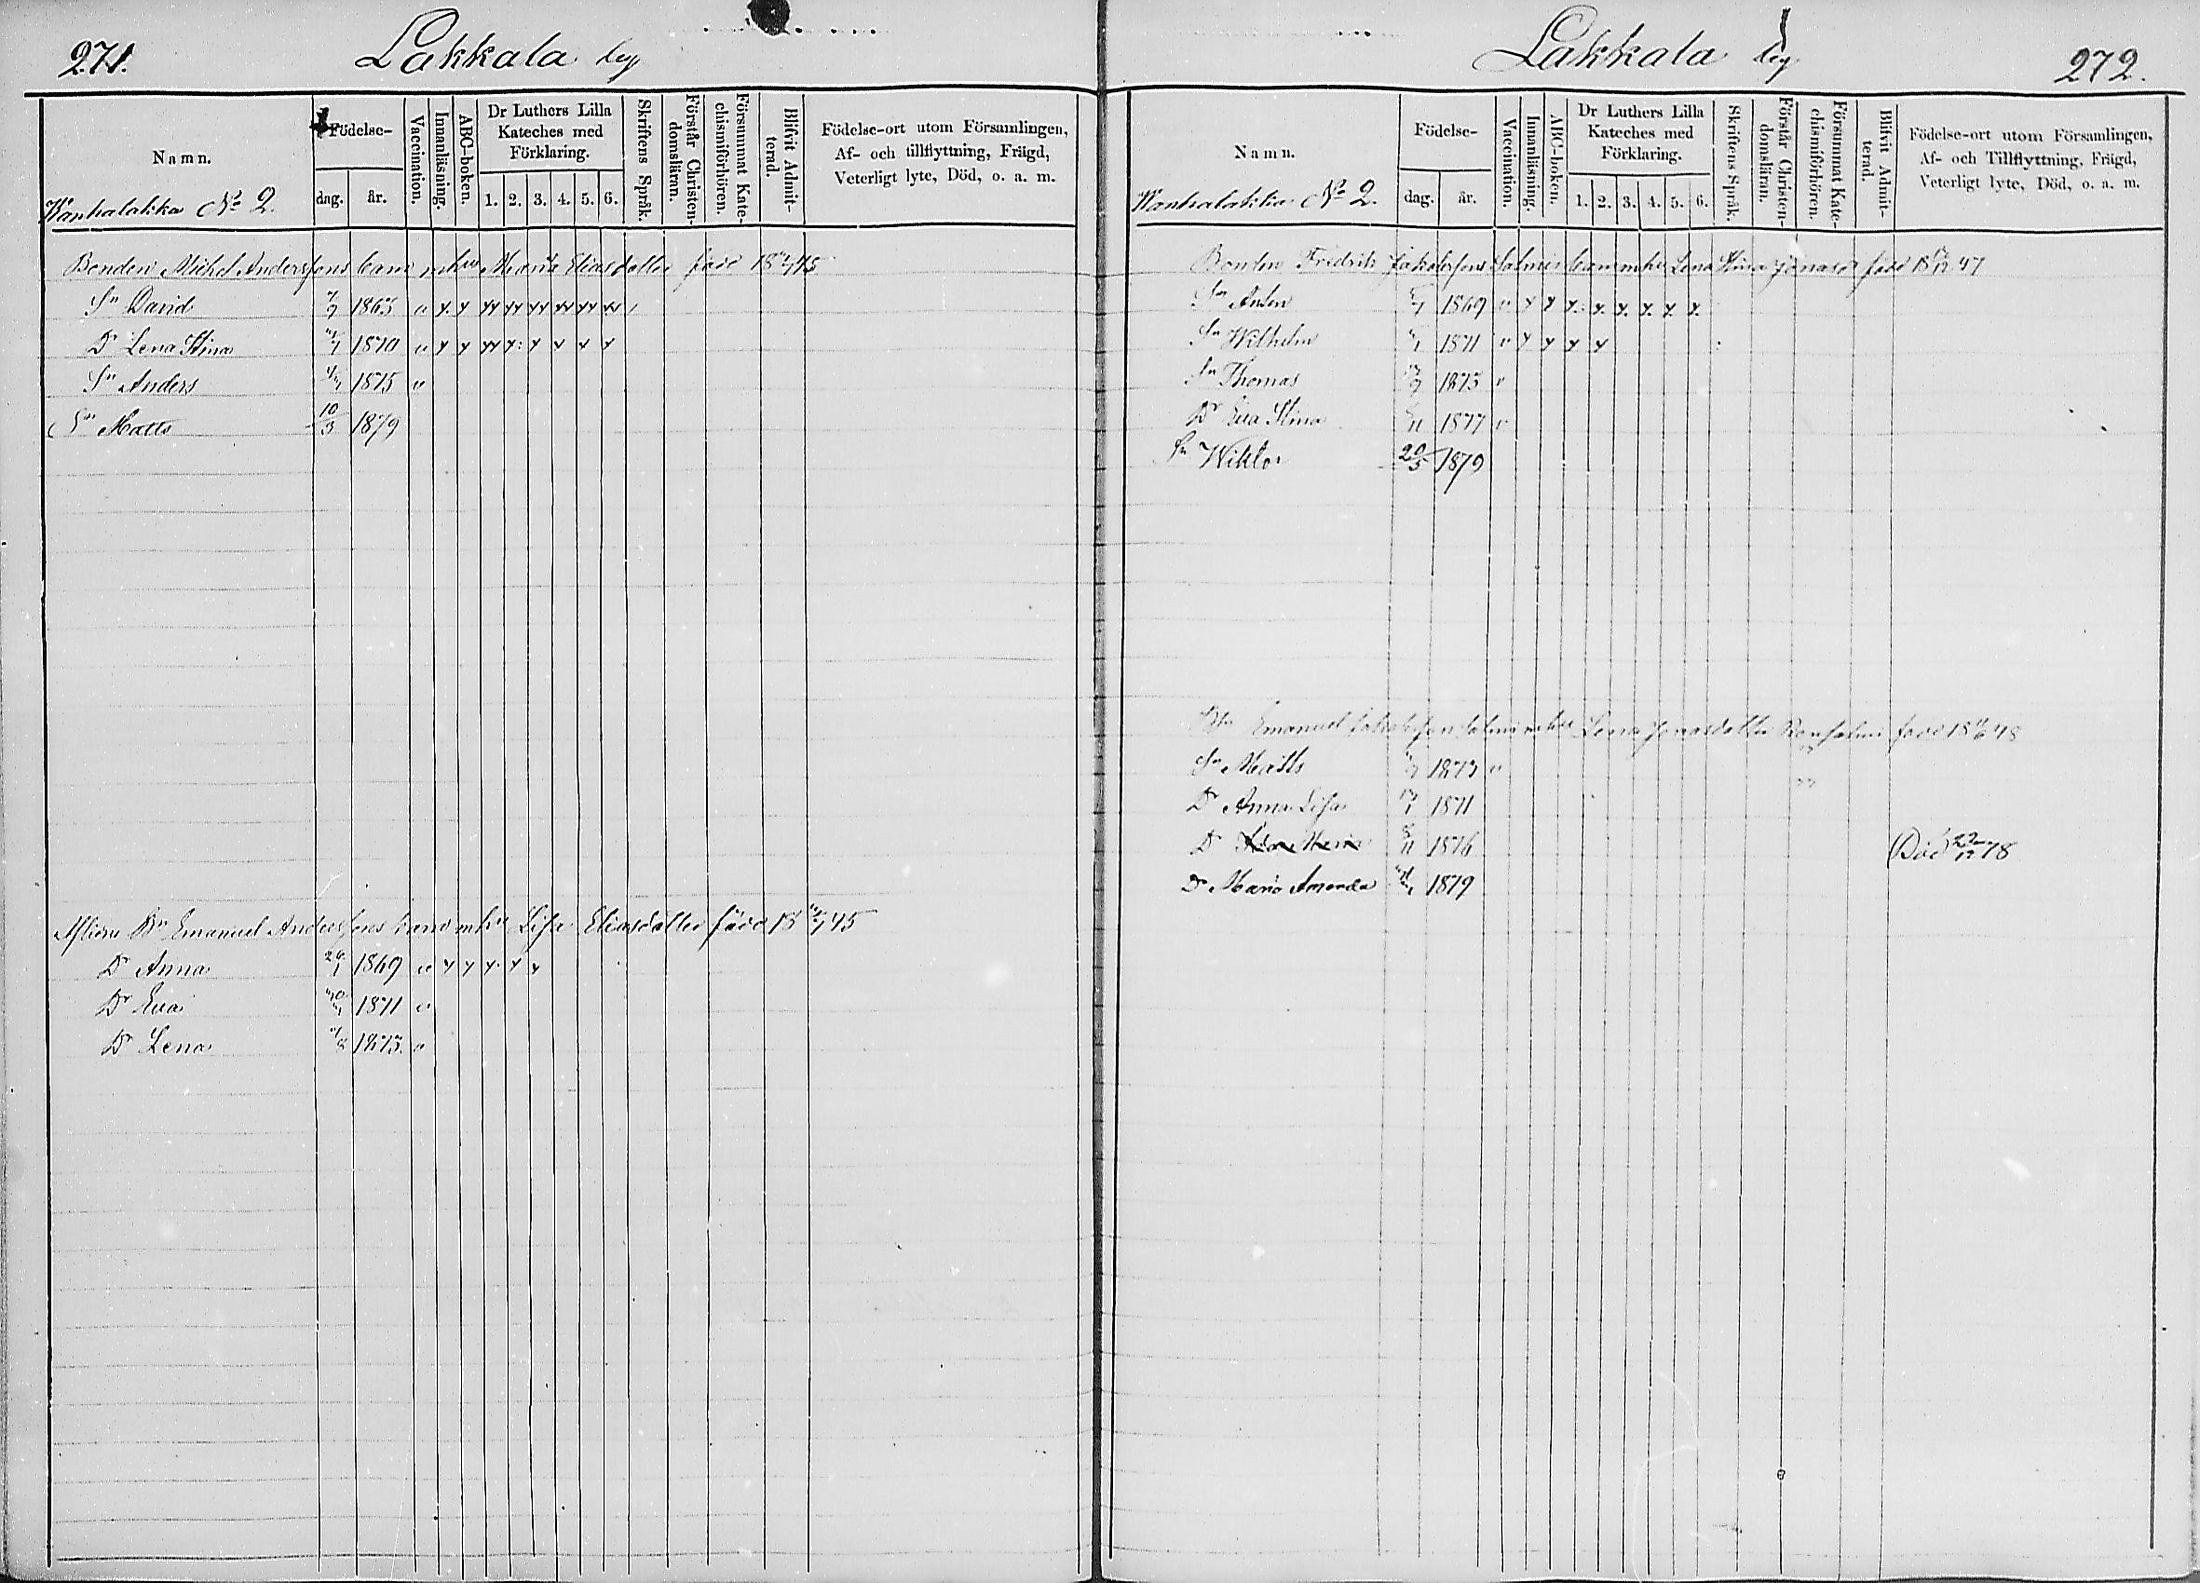 271.
Lakkala by
Namn.
Wanhalakka No 2.
Födelse-
dag.
år.
Vaccination.
Innanläsning.
ABC-boken.
Dr Luthers Lilla
Kateches med
Förklaring.
1. 2. 3. 4. 5. 6.
Skriftens Språk.
Förstår Christen-
domsläran.
Försummat Kate-
chismiförhören.
Blifvit Admit-
terad.
Födelse-ort utom Församlingen,
Af- och tillflyttning, Frägd,
Veterligt lyte, Död, o. a. m.
Bonden Michel Anderssons barn m hu Maria Eliasdotter född
Sn David 1863 v
Dr Lena Stina 1870 v
Sn Anders 1875 v
Sn Matts 10/3 1879
Bn Emanuel Anderssons barn m hu Lisa Eliasdotter född 45
Dr Anna 1869 v
Dr Eva 1871 v
Dr Lena 1873 v
Lakkala by
272.
Namn.
Wanhalakka No 2.
Födelse-
dag.
år.
Vaccination.
Innanläsning.
ABC-boken.
Dr Luthers Lilla
Kateches med
Förklaring.
1. 2. 3. 4. 5. 6.
Skriftens Språk.
Förstår Christen-
domsläran.
Försummat Kate-
chismiförhören.
Blifvit Admit-
terad.
Födelse-ort utom Församlingen,
Af- och Tillflyttning, Frägd,
Veterligt lyte, Död, o. a. m.
Bonden Fredrik Jakobssons Salmis barn m hu Lena Stina Jonasdr född 47
Sn Anton 1869 v
Sn Wilhelm 1871 v
Sn Thomas 1873 v
Dr Eva Stina 1877 v
Sn Wiktor 29/5 1879
Bn Emanuel Jakobsson Salmis m hu Lena Jonasdotter född 48
Sn Matts 1873 v
Dr Anna Lisa 1871
Dr 1876 Död 78
Dr Maria Amanda 1879